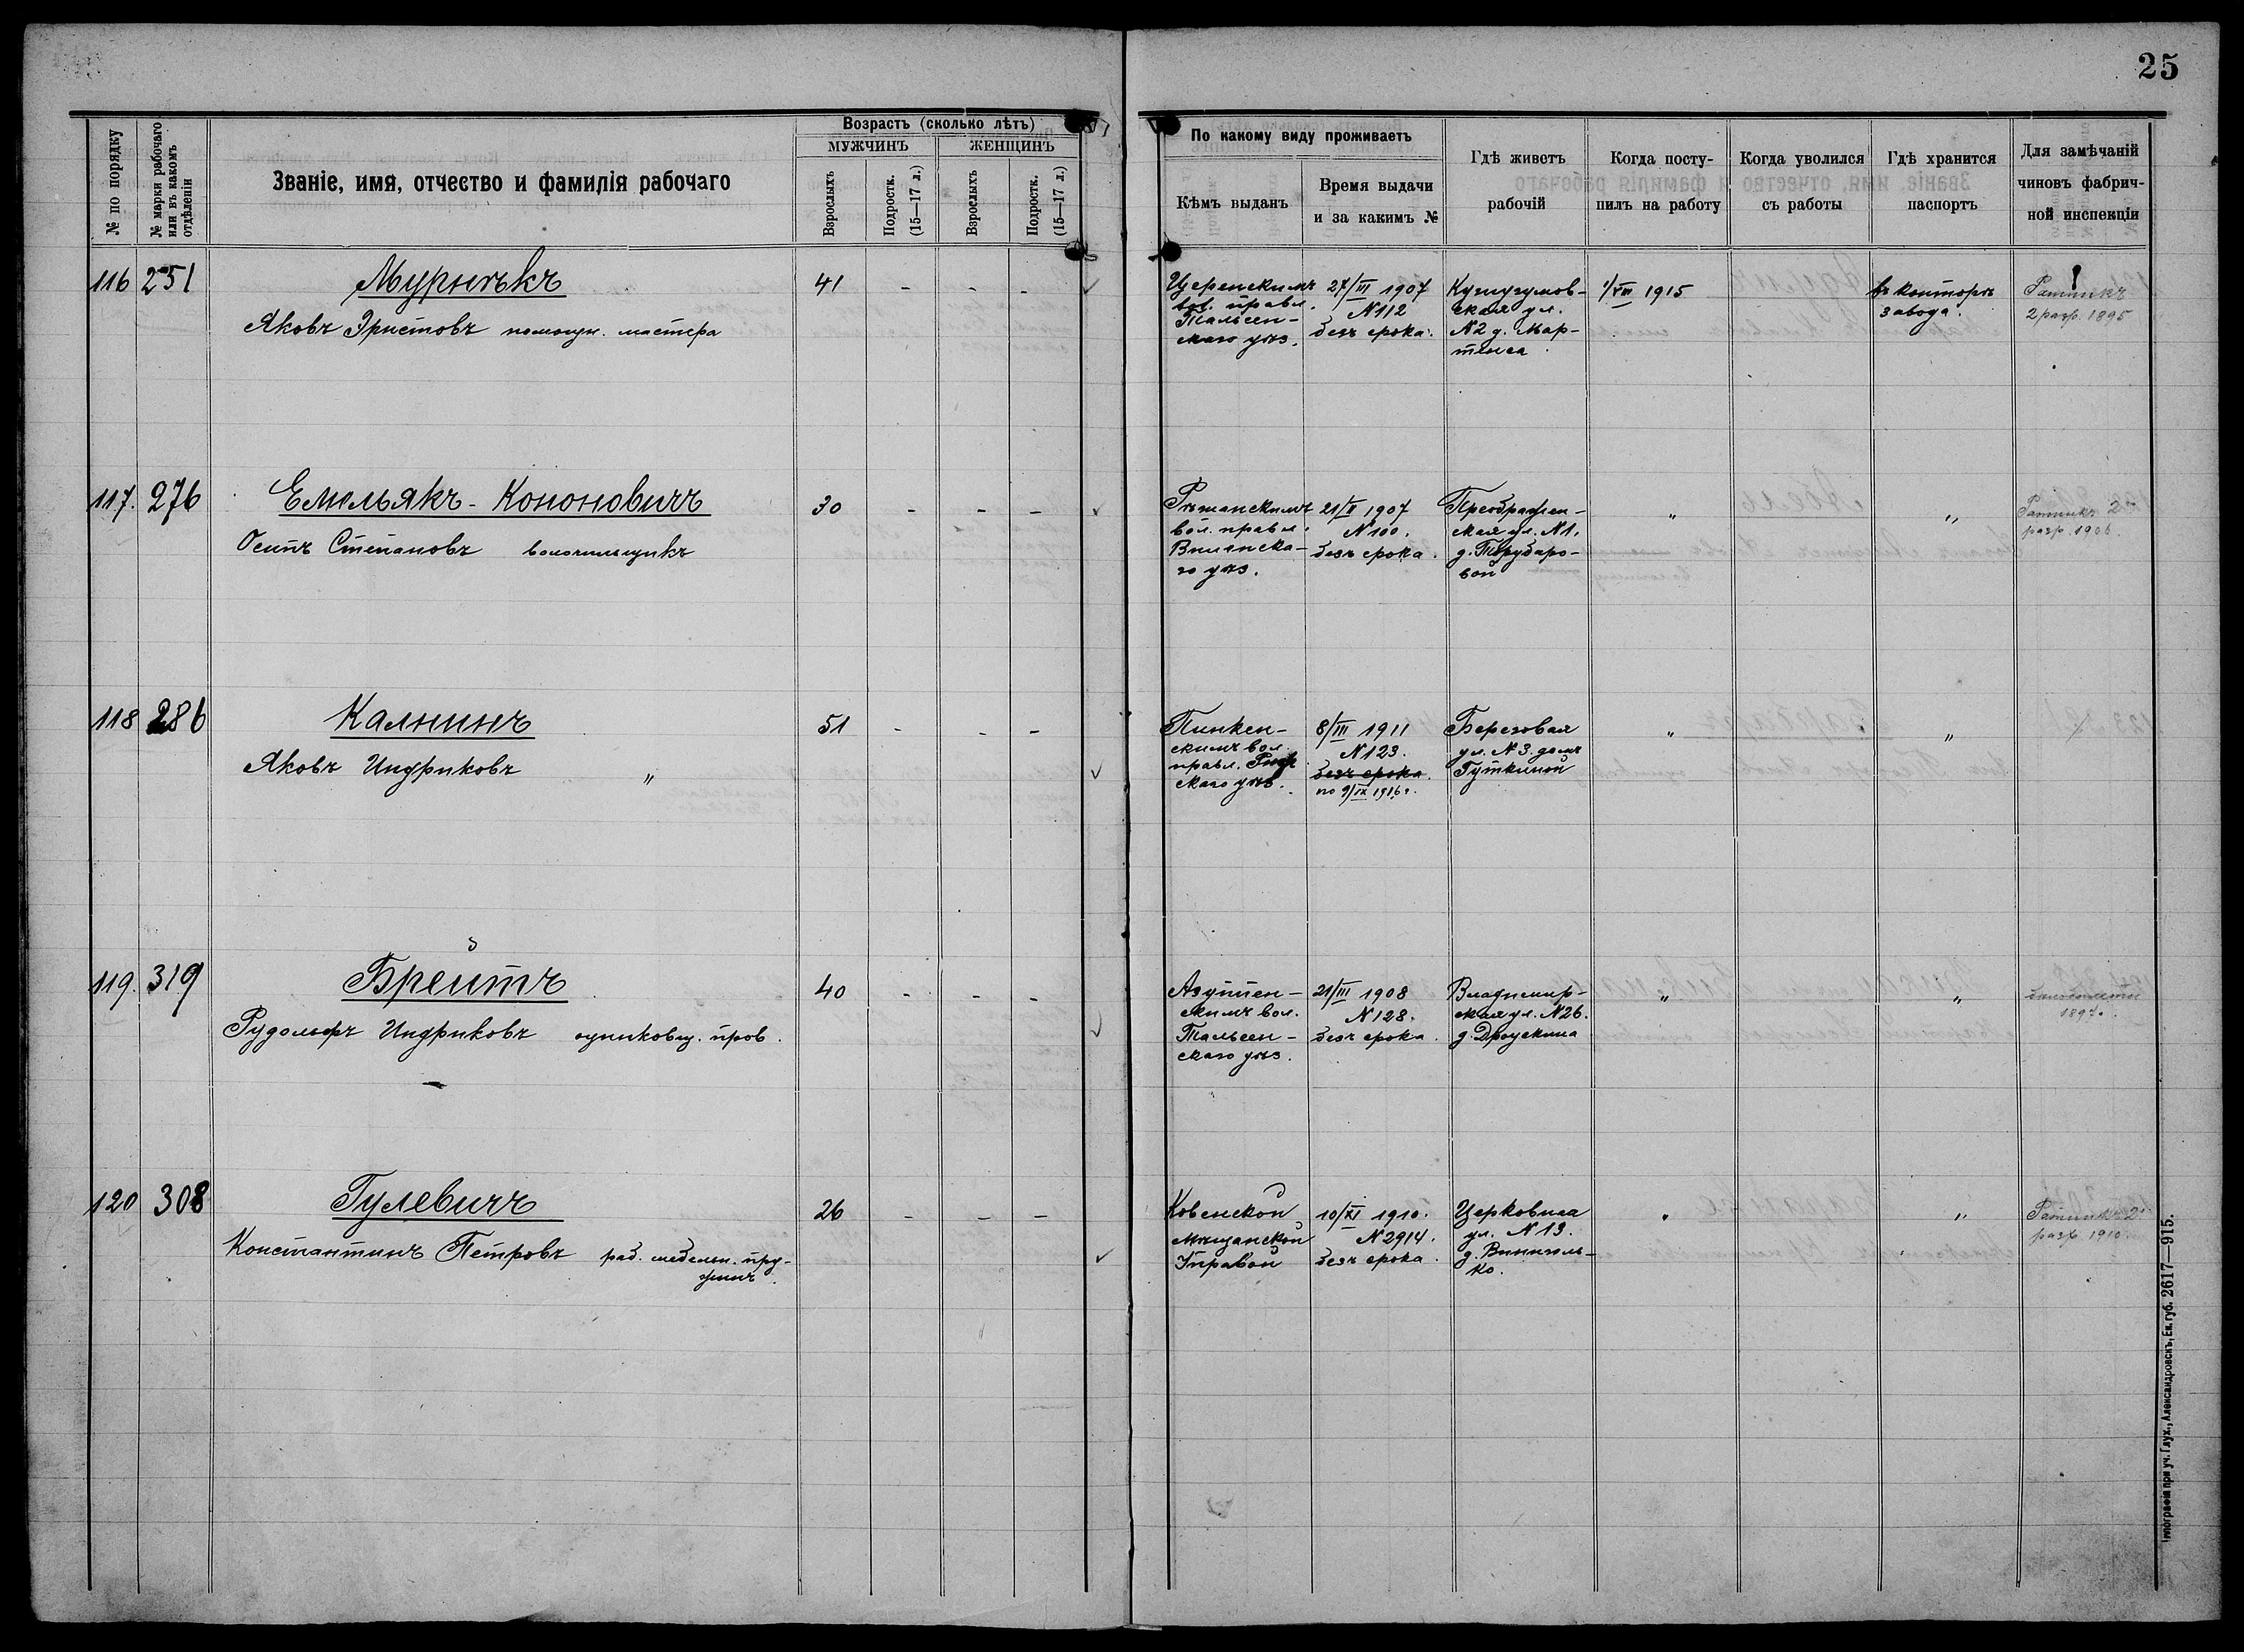 25
№ по порядку
№ марки рабочаго или въ какомъ отдѣленіи
Званіе, имя, отчество и фамилія рабочаго
Возрастъ (сколько лѣтъ)
МУЖЧИНЪ
ЖЕНЩИНЪ
Взрослыхъ
Подростк. (15—17 л.)
Взрослыхъ
Подростк. (15—17 л.)
По какому виду проживаетъ
Кѣмъ выданъ
Время выдачи
и за какимъ №
Гдѣ живетъ
рабочій
Когда посту-
пилъ на работу
Когда уволился
съ работы
Гдѣ хранится
паспортъ
Для замѣчаній
чиновъ фабрич-
ной инспекціи
116 251
Мурнѣкъ
Яковъ Эристовъ помощн. мастера
41 - - -
Церенскимъ
вол. правл.
Тальсен-
скаго уѣз.
27/III 1907
N 112
безъ срока.
Кушугумов-
ская ул.
N 2 д. Мар-
тенса
1/VIII 1915
въ конторѣ
завода.
Ратникъ
2 разр. 1895
117. 276
Емельякъ - Кононовичъ
Осипъ Степановъ волочильщикъ
30 - - -
Рѣшанскимъ
вол. правл.
Виленска-
го уѣз.
21/II 1907
N 100.
безъ срока.
Преображен-
ская ул. N 1.
д. Трубаро-
вой
"
"
Ратникъ 2
разр. 1906
118 286
Калнинъ
Яковъ Индриковъ "
51 - - -
Пинкен-
скимъ вол.
правл. Риж
скаго уѣз.
8/III 1911
N 123.
безъ срока.
по 9/IX 1916 г.
Березовая
ул. N 3. домъ
Гуткиной
"
"
119. 319
Брейтъ
Рудольфъ Индриковъ оцинковщ. пров.
40 - - -
Азуппен-
скимъ вол.
Тальсен-
скаго уѣз.
21/III 1908
N 128.
безъ срока.
Владимир-
ская ул. N 26.
д. Друскина
"
"
1897.
120 308
Гулевичъ
Константинъ Петровъ раб. мебельн. пру-
жинъ.
26 - - -
Ковенской
Мѣщанской
Управой
10/XI 1910.
N 2914.
безъ срока.
Церковная
ул. N 13.
д. Виниль-
ко.
"
"
Ратникъ 2
разр 1910
Типографія при уч. Глух., Александровскъ, Ек. губ. 2617—915.